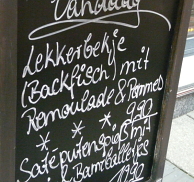 Vandaag
Lekkerbekje
(Backfisch) mit
Remoulade & Pommes
9,90
* * *
Saté putenspieß mit
Bamiballetjes